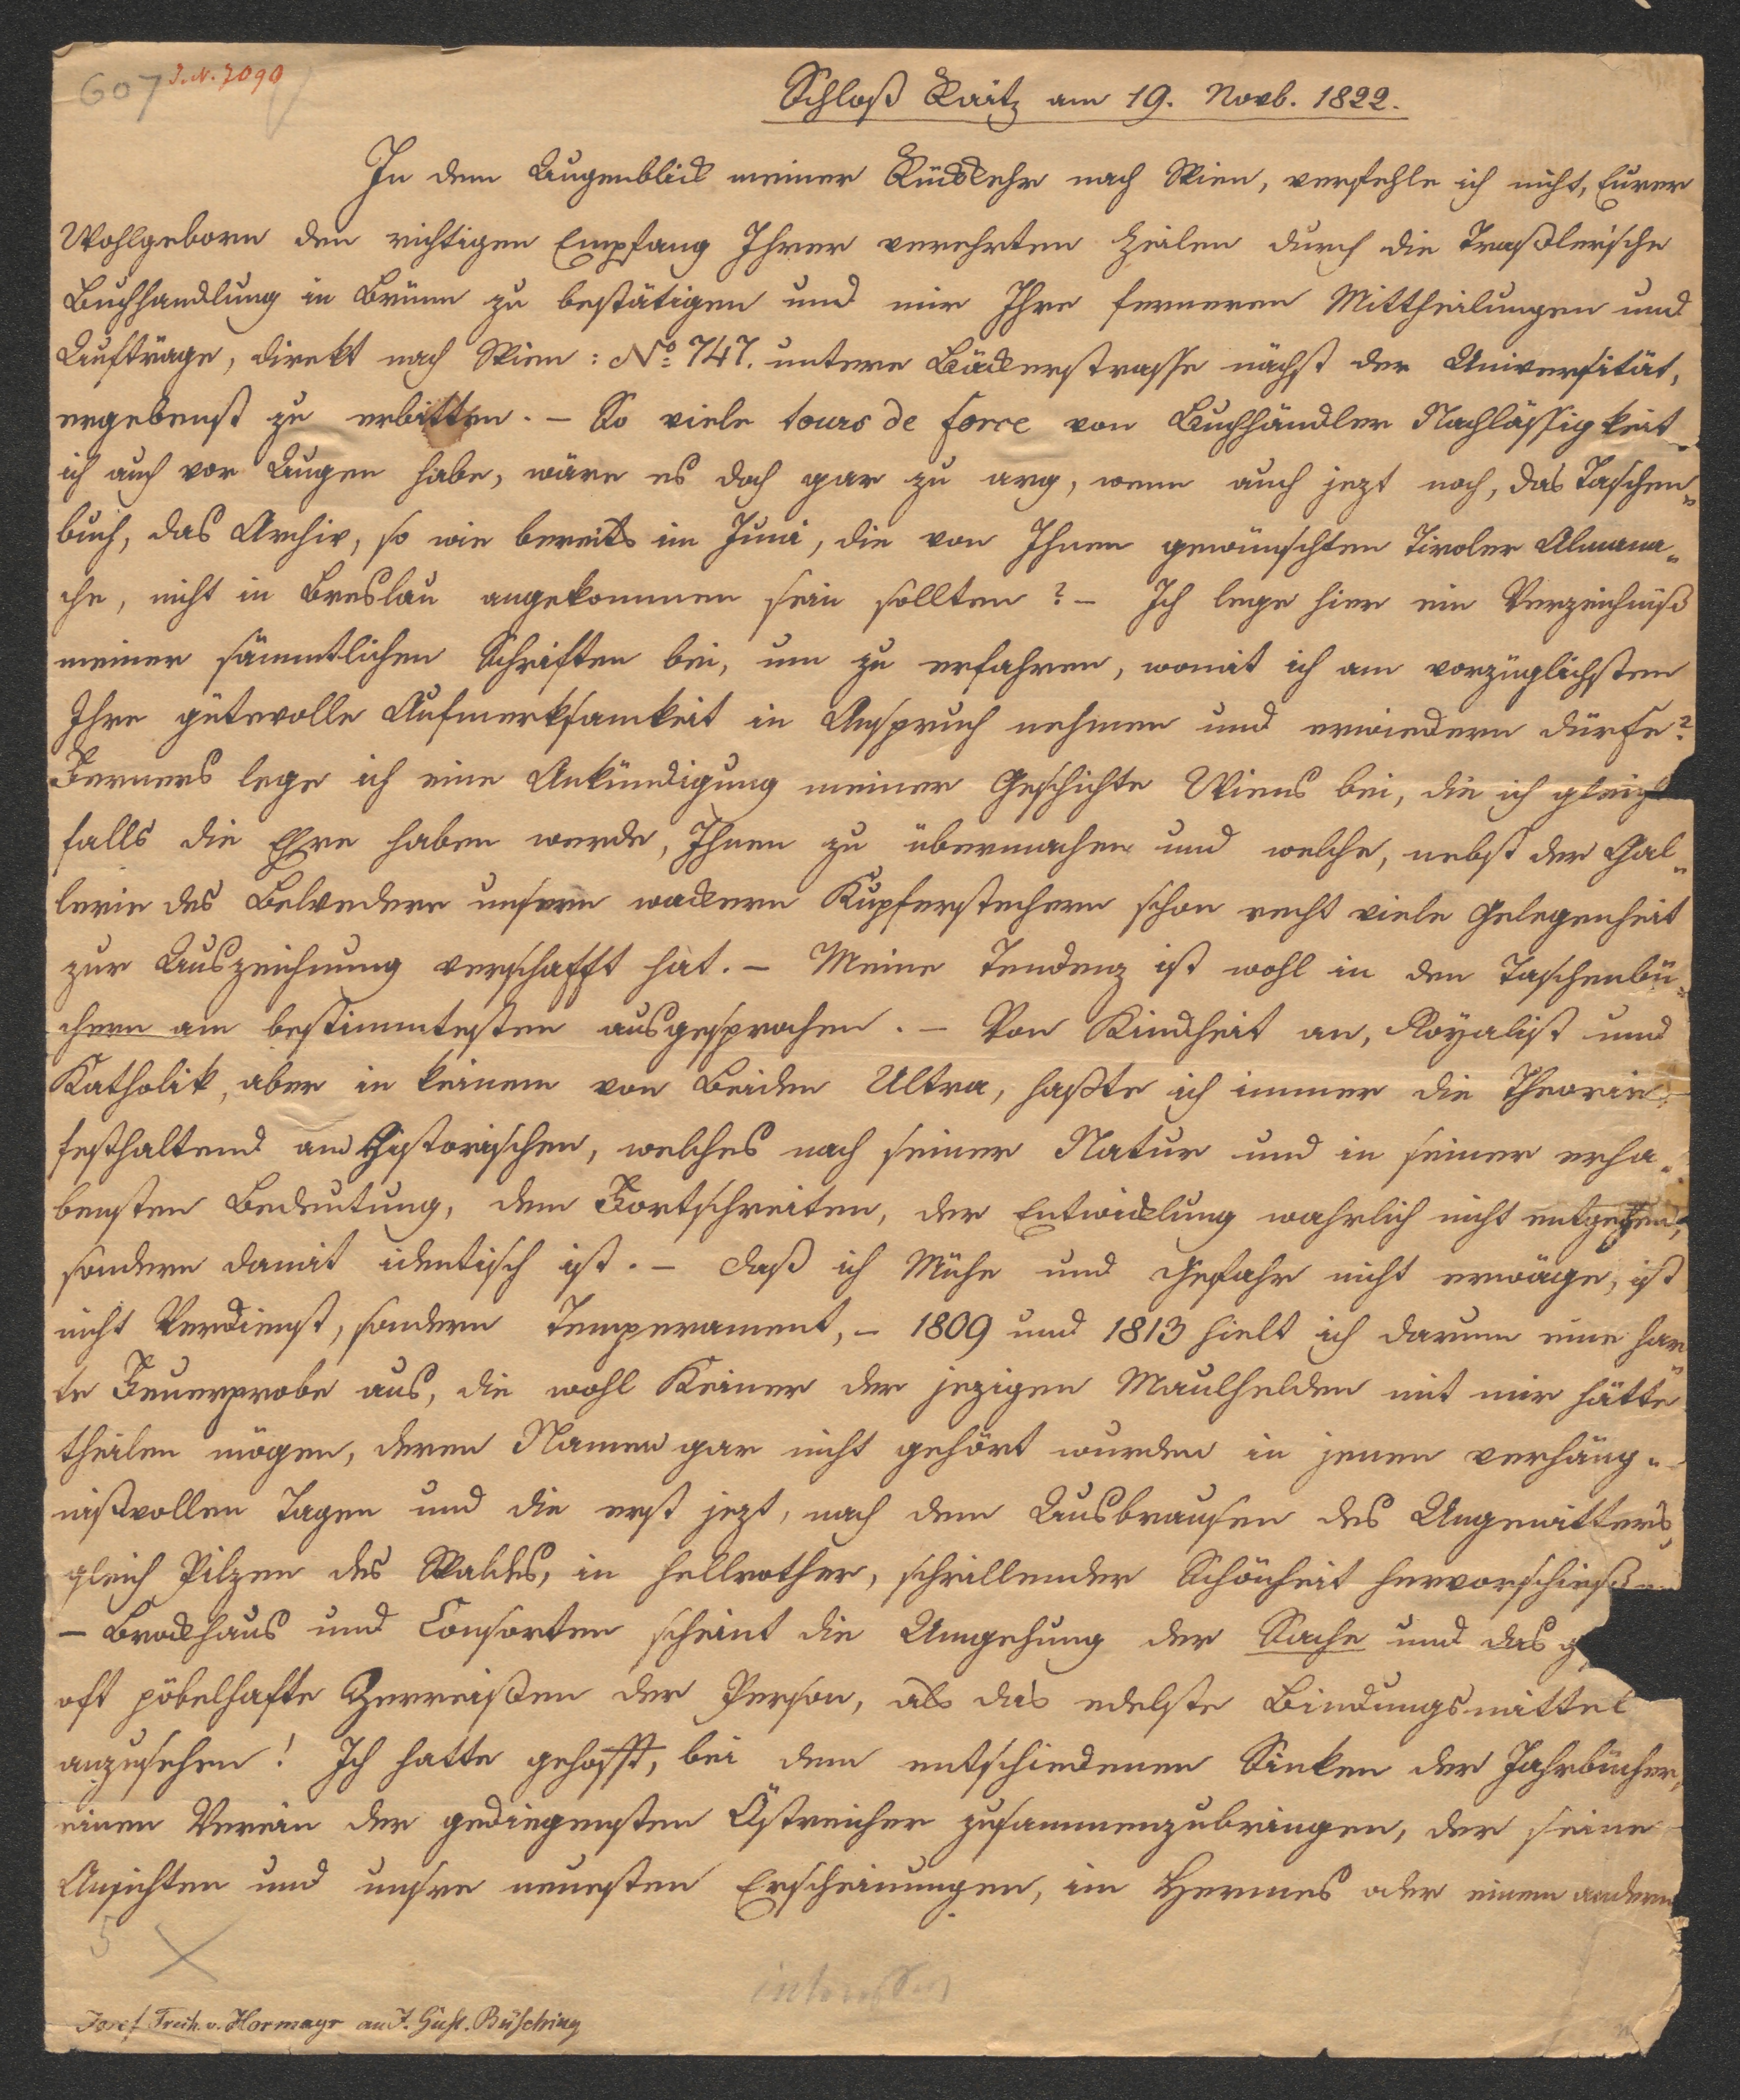 607 J.N. 7090
Schloß Raitz am 19. Novb. 1822.
In dem Augenblick meiner Rückkehr nach Wien, verfehle ich nicht, Eurer
Wohlgeborn den richtigen Empfang Ihrer verehrten Zeilen durch die Traßlerische
Buchhandlung in Brünn zu bestätigen und mir Ihre ferneren Mittheilungen und
Aufträge, direkt nach Wien: No. 747. untere Bäckerstrasse nächst der Universität,
ergebenst zu erbitten. – So viele tours de force von Buchhändler Nachlässigkeit
ich auch vor Augen habe, wäre es doch gar zu arg, wenn auch jezt noch, das Taschen„
buch, das Archiv, so wie bereits im Juni, die von Ihnen gewünschten Tiroler Almana„
che, nicht in Breslau angekommen sein sollten? – Ich lege hier ein Verzeichniß
meiner sämmtlichen Schriften bei, um zu erfahren, womit ich am vorzüglichsten
Ihre gütevolle Aufmerksamkeit in Anspruch nehmen und erwiedern dürfe?
Ferners lege ich eine Ankündigung meiner Geschichte Wiens bei, die ich gleich
falls die Ehre haben werde, Ihnen zu übermachen und welche, nebst der Gal„
lerie des Belvedere unsern wackern Kupferstechern schon recht viele Gelegenheit
zur Auszeichnung verschafft hat. – Meine Tendenz ist wohl in den Taschenbü„
chern am bestimmtesten ausgesprochen. – Von Kindheit an, Royalist und
Katholik, aber in keinem von Beiden Ultra, haßte ich immer die Theorie
festhaltend am Historischen, welches nach seiner Natur und in seiner erha„
bensten Bedeutung, dem Fortschreiten, der Entwicklung wahrlich nicht entgegen,
sondern damit identisch ist. – Daß ich Mühe und Gefahr nicht erwäge, ist
nicht Verdienst, sondern Temperament, – 1809 und 1813 hielt ich darum eine har
te Feuerprobe aus, die wohl Keiner der jezigen Maulhelden mit mir hätte
theilen mögen, deren Namen gar nicht gehört wurden in jenen verhäng„
nißvollen Tagen und die erst jezt, nach dem Ausbrausen des Ungewitters,
gleich Pilzen des Waldes, in hellrother, schrillender Schönheit hervorschießen
– Brockhaus und Consorten scheint die Umgehung der Sache und das
oft pöbelhafte Zerreißen der Person, als das edelste Bindungsmittel
anzusehen! Ich hatte gehofft, bei dem entschiedenen Sinken der Jahrbücher,
einen Verein der gediegensten Östreicher zusammenzubringen, der seine
Ansichten und unsre neuesten Erscheinungen, im Hermes oder einem andern
5
Josef Freih. v. Hormayr an J. Gust. Büsching